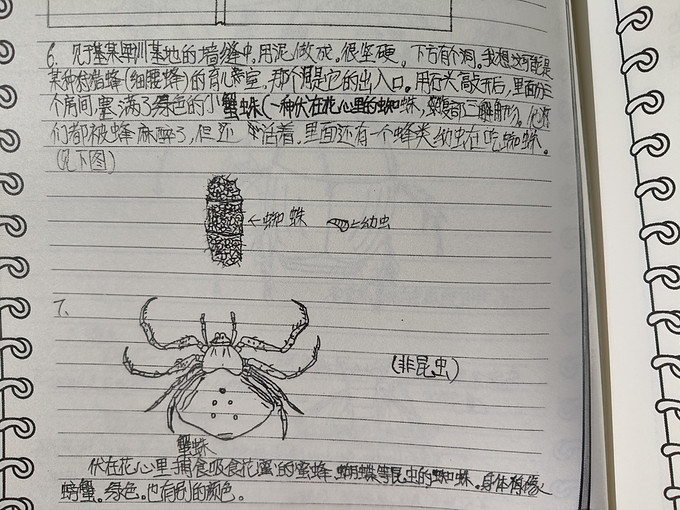 6. 见于基某军训基地的墙缝中,用泥做成。很坚硬,下方有个洞。我想这可能是
某种狩猎蜂(细腰蜂)的育儿室,那个洞是它的出入口。用石头敲开后,里面分三
个房间,塞满了绿色的小蟹蛛(一种伏在花心里的蜘蛛,腹部三角形)。
们都被蜂麻醉了,但还活着,里面还有一个蜂类幼虫在吃蜘蛛。
(见下图)
←蜘蛛
←幼虫
7.
(非昆虫)
蟹蛛
伏在花心里捕食吸食花蜜的蜜蜂、蝴蝶等昆虫的蜘蛛。身体有像
螃蟹。绿色。也有别的颜色。